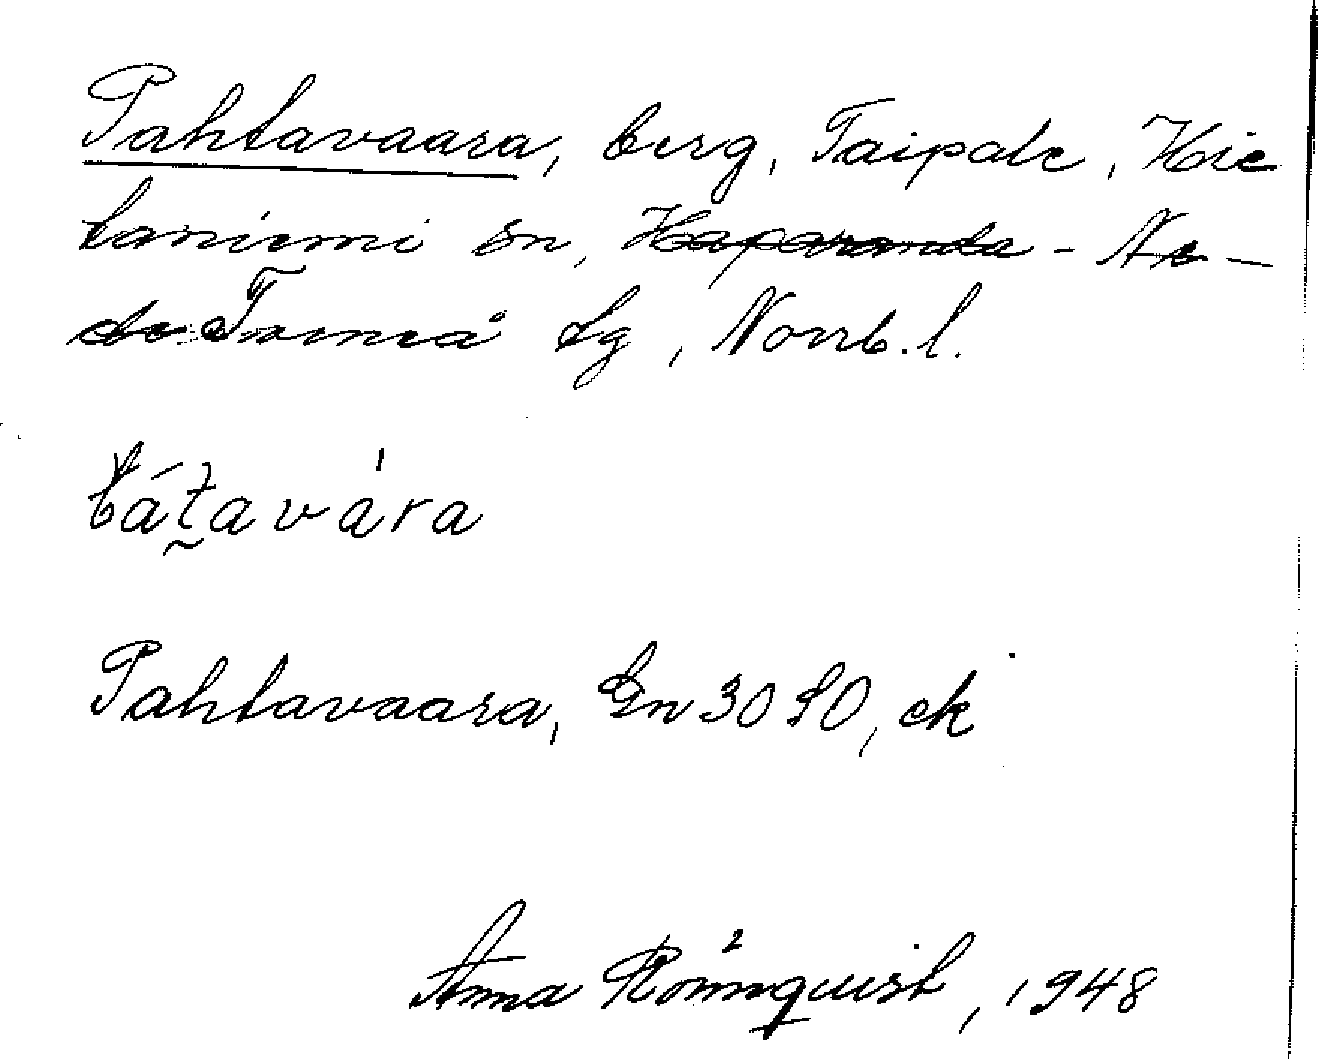 Pahtavaara, berg, Taipale, Hie
taniemi sn, Haparanda - Ne -
dr Torneå tg, Norrb. l.
Pahtavaara, Gn 30 SO, ek
Anna Rönnquist, 1948